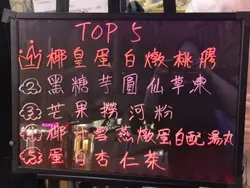 TOP 5
1 椰皇蛋白燉桃膠
2 黑糖芋圓仙草凍
3 芒果撈河粉
4 椰汁雪燕燉蛋白配湯丸
5 蛋白杏仁茶